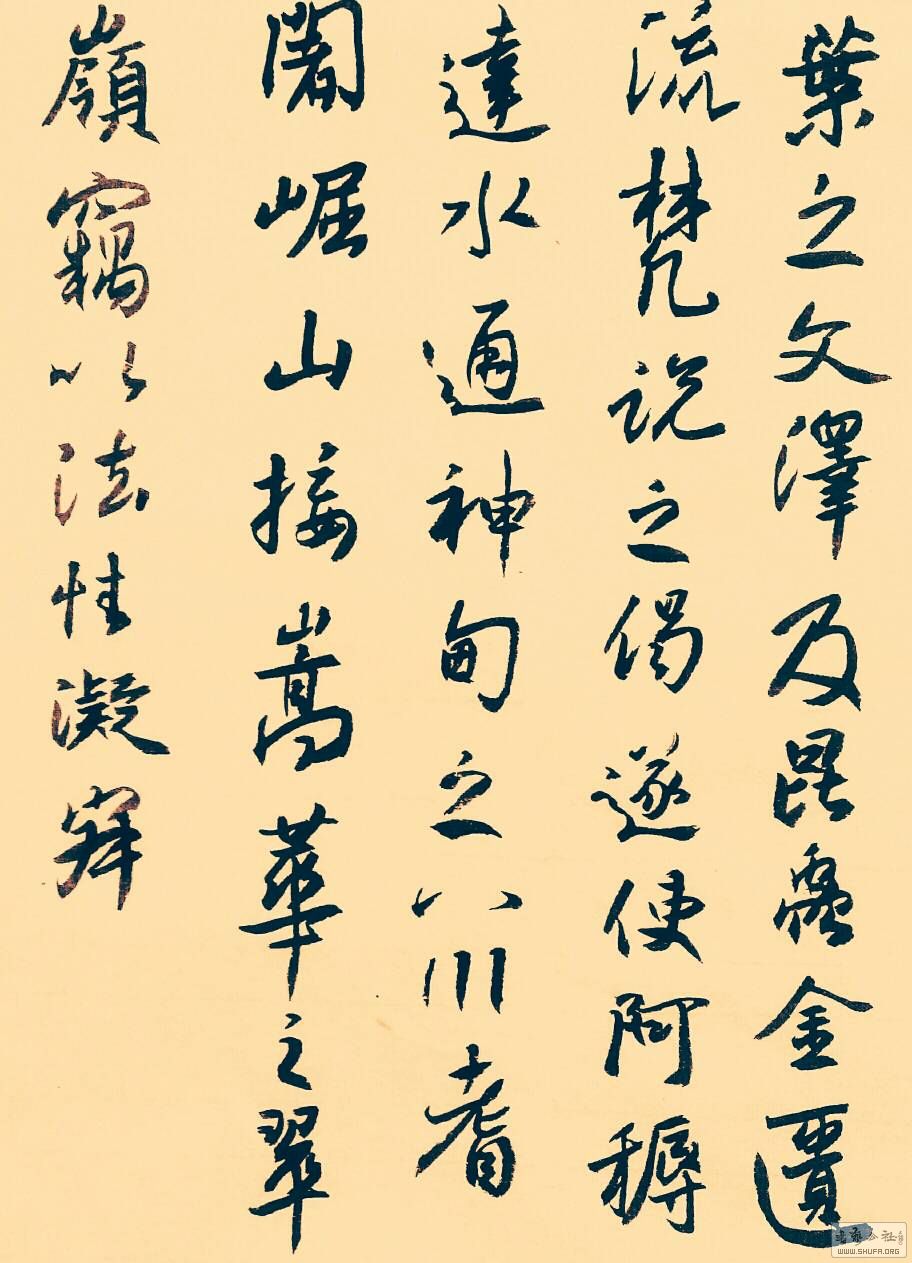 葉之文澤及昆蟲金匱
流梵說之偈遂使阿耨
達水通神甸之八川耆
闍崛山接嵩華之翠
嶺竊以法性凝寂
書法公社
WWW.SHUFA.ORG